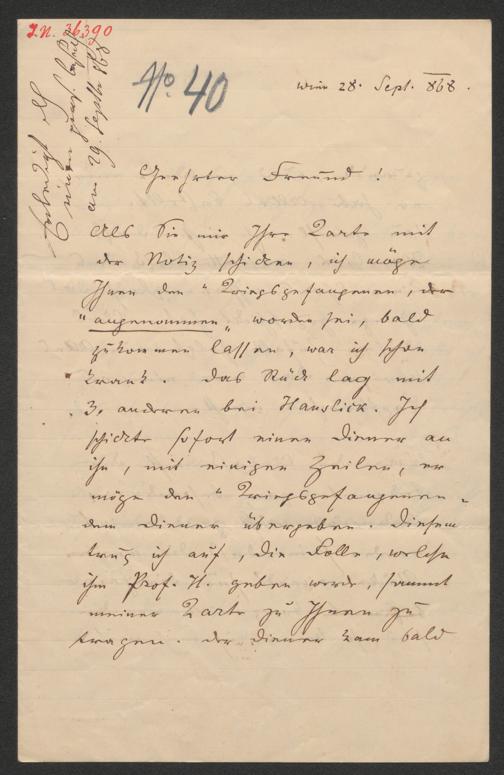 I.N. 36390
No. 40
Wien 28. Sept. 868.
Erledigt
am 29. Septb 868
Geehrter Freund!
Als Sie mir Ihre Karte mit
der Notiz schickten, ich möge
Ihnen den "Kriegsgefangenen, der
"angenommen" worden sei, bald
zukommen lassen, war ich schon
krank. Das Stück lag mit
3. anderen bei Hanslick. Ich
schickte sofort einen Diener an
ihn, mit einigen Zeilen, er
möge den "Kriegsgefangenen"
dem Diener übergeben. Diesem
trug ich auf, die Rolle, welche
ihm Prof. H. geben werde, sammt
meiner Karte zu Ihnen zu
tragen. Der Diener kam bald